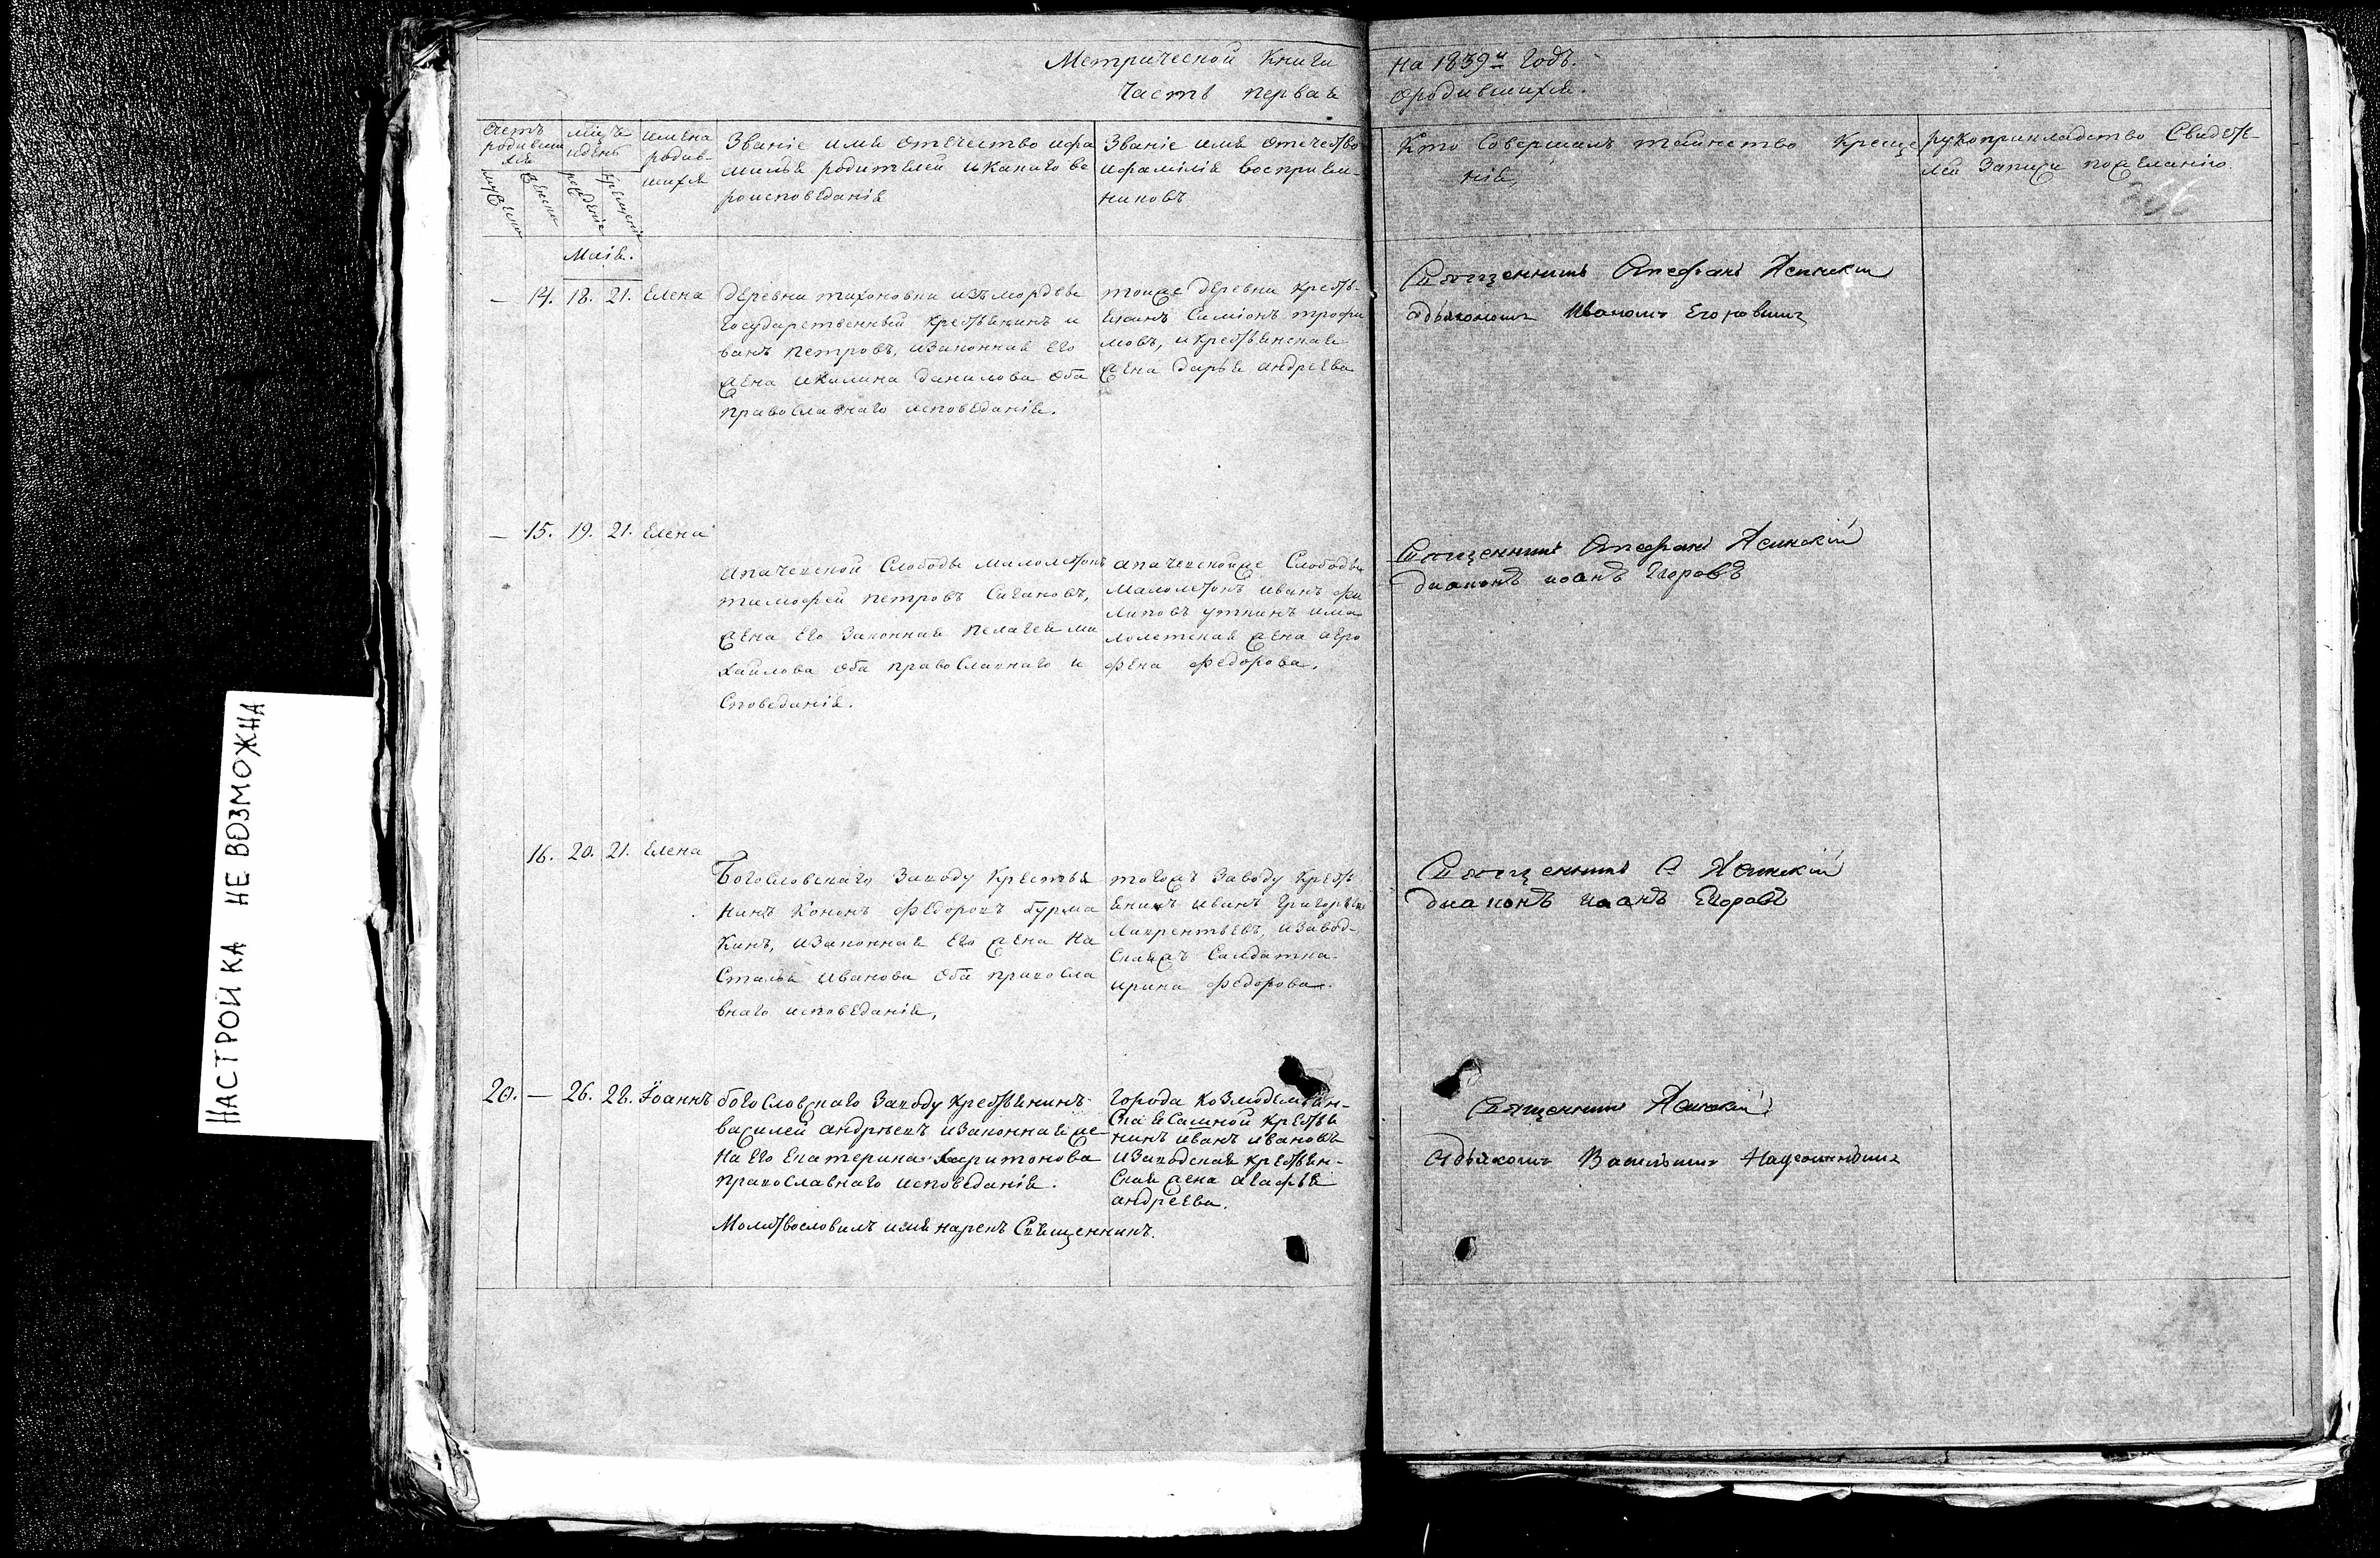 Метрической Книги
Часть первая
на 1839й годъ.
ородившихся.
Счетъ родивши хся
мужеска
женска
мѣцъ идень
рожденіе
крещеніе
имена родив- шихся
Званіе имя отечество ифа
милія родителей икакаго вѣ
роисповеданія
Званіе имя отечество
ифамілія восприем-
никовъ
Кто Совершалъ таинство Креще
нія,
рукоприкладство Свидете-
лей Записи пожеланію.
266
Маія.
— 14. 18. 21. Елена
деревни тихоновки изъ мордвы
государственный крестьянинъ и
ванъ Петровъ, изаконная его
жена икилина данилова оба
православнаго исповеданія.
тоиже деревни кресть-
янинъ Симіонъ трофи
мовъ, икрестьянская
жена дарья андреева
Священникъ Стефанъ Ясинскій
здьякономъ Иваномъ Егоровымъ
— 15. 19. 21. Елена
Слободы малолетокъ
тимофей петровъ Сигановъ,
жена его законная пелагея ми
хайлова оба православнаго и
споведанія.
Слободы
малолетокъ иванъ фи
липовъ уткинъ има
лолетская жена агро
фена федорова.
Священникъ Стефанъ Ясинскій
диаконъ иоанъ Егоровъ
16. 20. 21. Елена
Богословскаго Заводу Крестья
нинъ Кононъ Федоровъ Бурма
кинъ, изаконная его жена на
Сталья иванова оба правосла
внаго исповеданія,
тогожъ Заводу крест
янинъ иванъ григорьевъ
лаврентьевъ, изавод-
Скаяжъ Салдатка
ирина федорова.
Священникъ С Ясинскій
диаконъ иоанъ Егоровъ
20. — 26. 28. Іоаннъ
богословскаго Заводу крестьянинъ
василей андреевъ изаконная же-
на его екатерина харитонова
православнаго исповеданія.
Молитвословилъ имя нарекъ Священникъ.
города Козмодемьян-
Ска крестья
нинъ иванъ ивановъ
изаводская крестьян-
Ская жена агафья
андреева.
Священникъ Ясинскій
здьякомъ Васильемъ
НАСТРОЙКА НЕ ВОЗМОЖНА